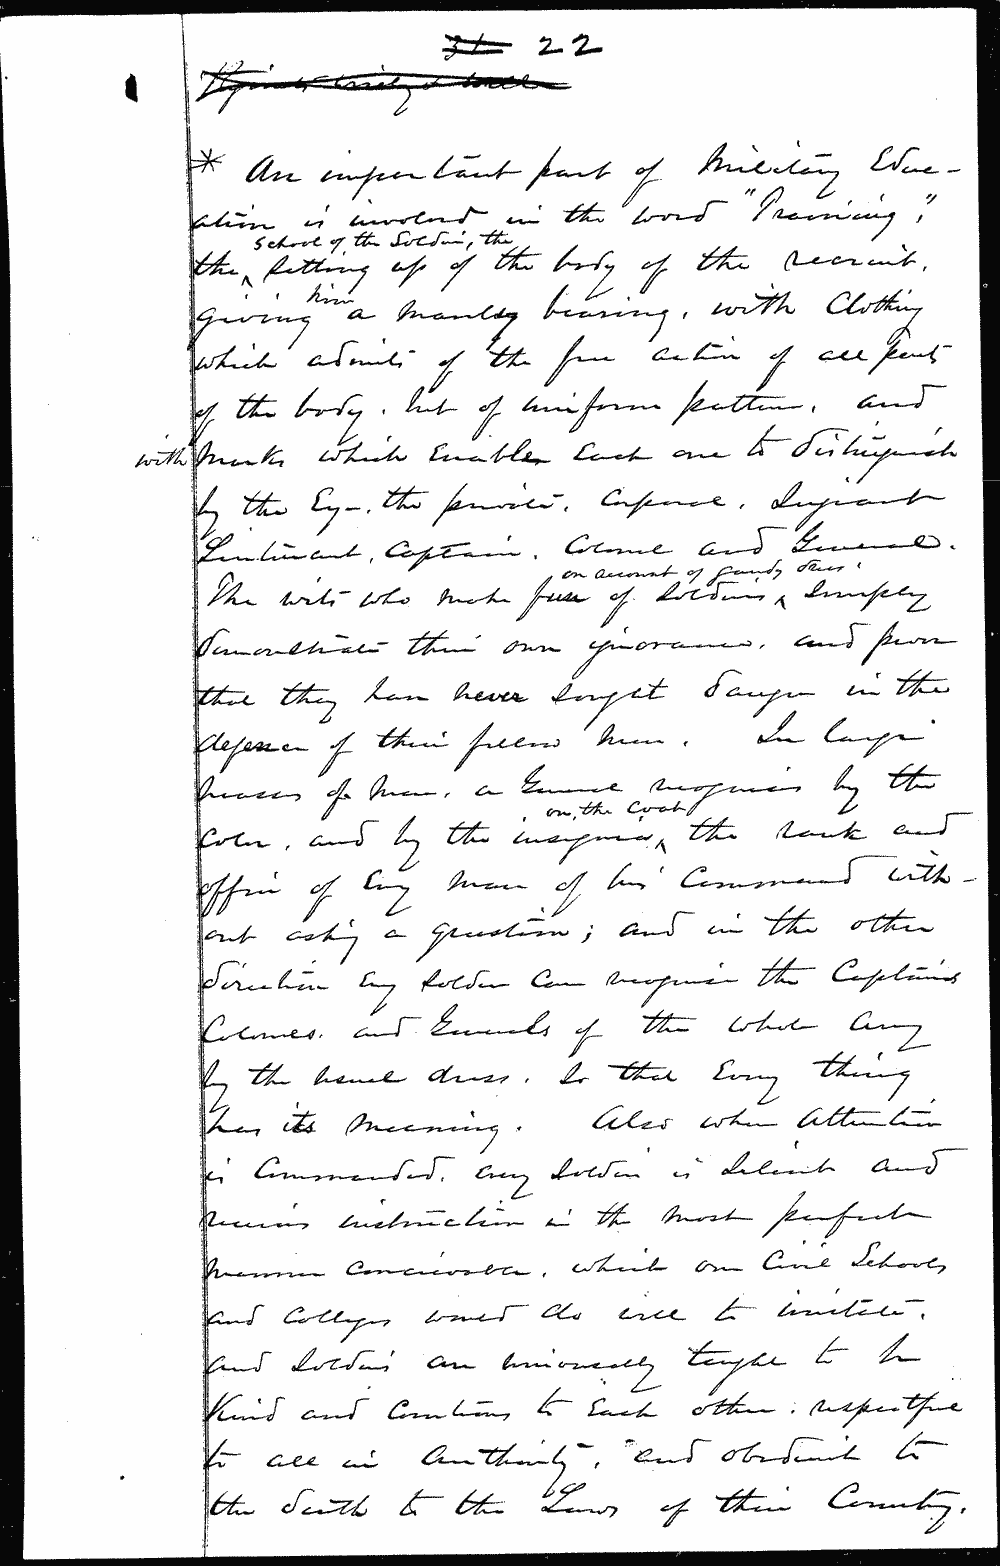 22
* An important part of Military Educ-
ation is involved in the word "Training",
school of the Soldier, the
the setting up of the body of the recruit,
him
giving a manly bearing, with Clothing
which admits of the free action of all parts
of the body, but of uniform pattern, and
with marks which Enables Each one to distinguish
by the Eye, the private, Corporal, Sergeant
Lieutenant, Captain, Colonel and General.
on account of gaudy dress,
The wits who make fun of Soldiers simply
demonstrate their own ignorance, and prove
that they have never sought danger in the
defence of their fellow men. In large
masses of Men, a General recognises by the
on the Coat
color, and by the insignia, the rank and
office of Every man of his Command with-
out asking a question; and in the other
direction Every soldier can recognise the Captains
Colonels, and Generals of the whole Army
by the usual dress, so that Every thing
has its meaning. Also when Attention
is Commanded, every Soldier is Silent and
receives instruction in the most perfect
manner conceivable, which our Civil Schools
and Colleges would do well to imitate,
and Soldiers are universally taught to be
Kind and Courteous to Each other, respectful
to all in Authority, and obedient to
the death to the Laws of their Country.